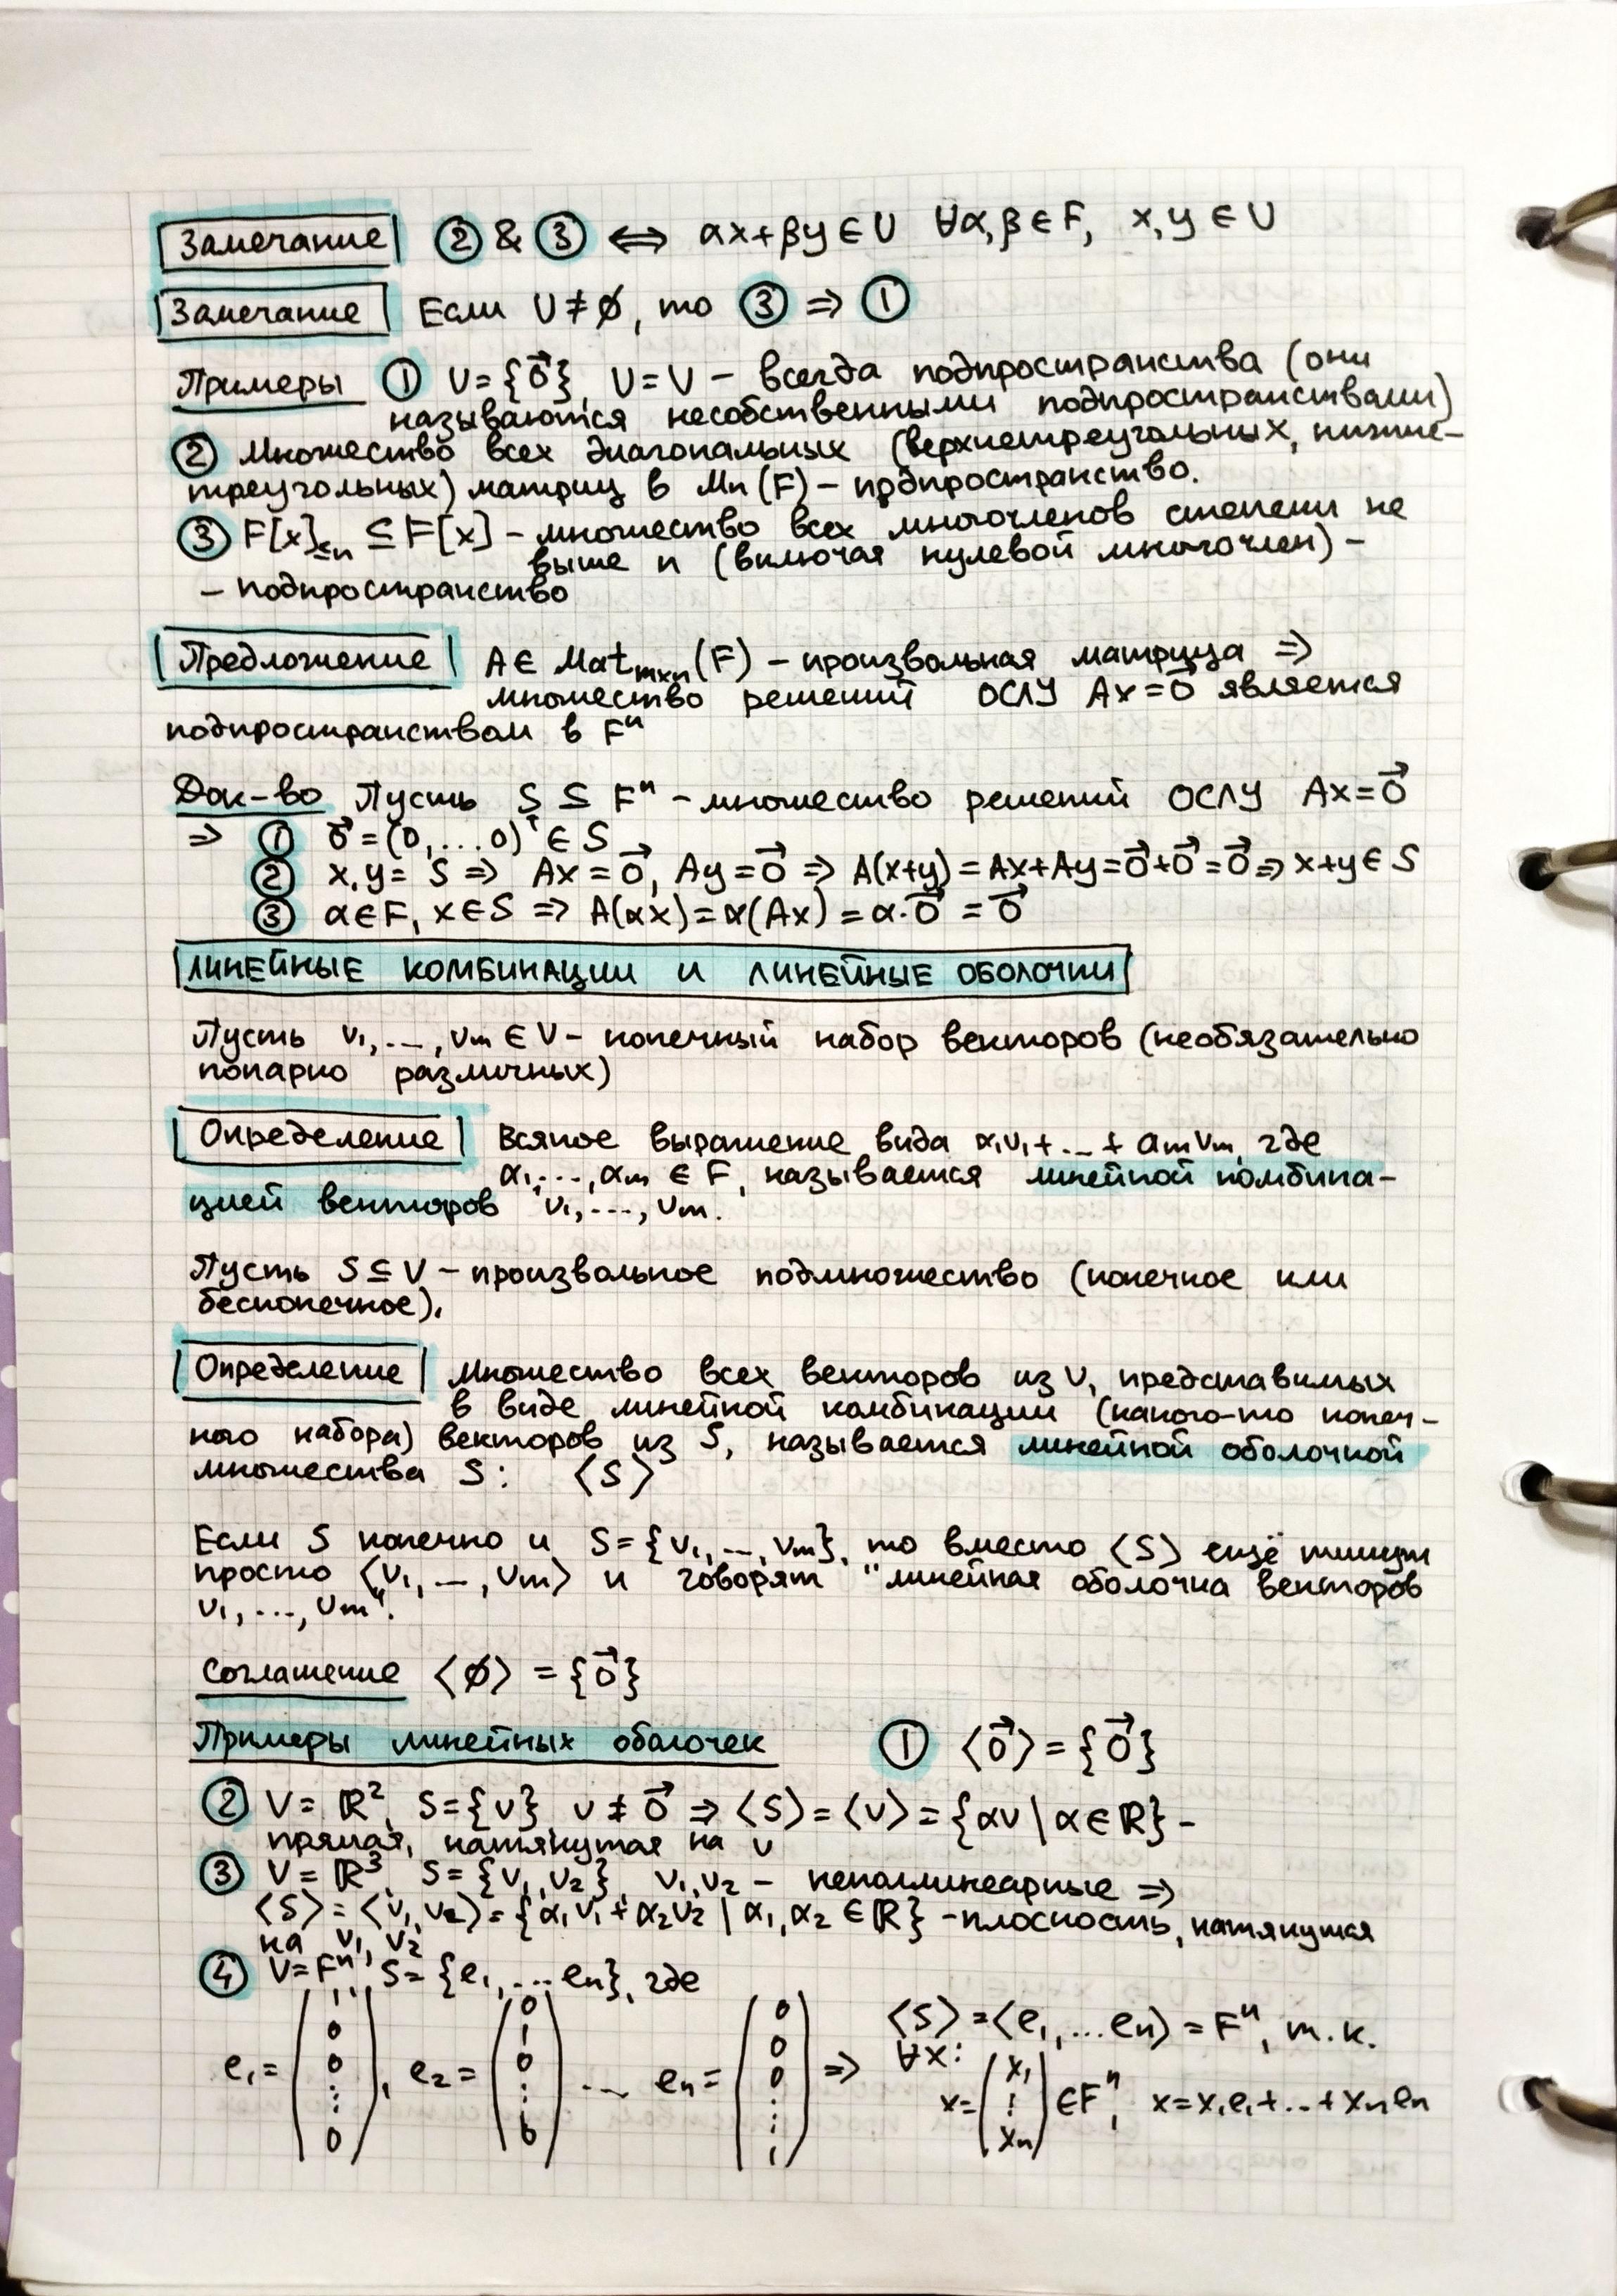 Замечание ② & ③ ⟺ αx+βy ∈ U ∀α,β ∈ F, x,y ∈ U
Замечание Если U ≠ ∅, то ③ ⇒ ①
Примеры ① U={0⃗}, U=V – всегда подпространства (они
называются несобственными подпространствами)
② Множество всех диагональных (верхнетреугольных, нижне-
треугольных) матриц в Mn(F) – подпространство.
③ F[x]≤n ⊆ F[x] – множество всех многочленов степени не
выше n (включая нулевой многочлен) –
– подпространство
Предложение A ∈ Matₘₓₙ(F) – произвольная матрица ⇒
множество решений ОСЛУ Ax=0⃗ является
подпространством в Fⁿ
Док-во Пусть S ⊆ Fⁿ – множество решений ОСЛУ Ax=0⃗
⇒ ① 0⃗=(0,...0)ᵀ ∈ S
② x,y= S ⇒ Ax=0⃗, Ay=0⃗ ⇒ A(x+y)=Ax+Ay=0⃗+0⃗=0⃗ ⇒ x+y ∈ S
③ α∈F, x∈S ⇒ A(αx)=α(Ax)=α·0⃗=0⃗
ЛИНЕЙНЫЕ КОМБИНАЦИИ И ЛИНЕЙНЫЕ ОБОЛОЧКИ
Пусть v₁,...,vₘ ∈ V – конечный набор векторов (необязательно
попарно различных)
Определение Всякое выражение вида α₁v₁+...+aₘvₘ, где
α₁,...,αₘ ∈ F, называется линейной комбина-
цией векторов v₁,...,vₘ.
Пусть S⊆V – произвольное подмножество (конечное или
бесконечное).
Определение Множество всех векторов из V, представимых
в виде линейной комбинации (какого-то конеч-
ного набора) векторов из S, называется линейной оболочкой
множества S: ⟨S⟩
Если S конечно и S={v₁,...,vₘ}, то вместо ⟨S⟩ ещё пишут
просто ⟨v₁,...,vₘ⟩ и говорят "линейная оболочка векторов
v₁,...,vₘ".
Соглашение ⟨∅⟩ = {0⃗}
Примеры линейных оболочек ① ⟨0⃗⟩={0⃗}
② V=ℝ², S={v}, v≠0⃗ ⇒ ⟨S⟩=⟨v⟩={αv | α∈ℝ} –
прямая, натянутая на v
③ V=ℝ³, S={v₁,v₂}, v₁,v₂ – неколлинеарные ⇒
⟨S⟩=⟨v₁,v₂⟩={α₁v₁+α₂v₂ | α₁,α₂∈ℝ} – плоскость, натянутая
на v₁,v₂
④ V=Fⁿ, S={e₁,...eₙ}, где
e₁=(1 0 0 ⋮ 0), e₂=(0 1 0 ⋮ 0) ... eₙ=(0 0 0 ⋮ 1) ⇒ ⟨S⟩=⟨e₁,...eₙ⟩=Fⁿ, т.к.
∀x:
x=(x₁ ⋮ xₙ)∈Fⁿ, x=x₁e₁+...+xₙeₙ